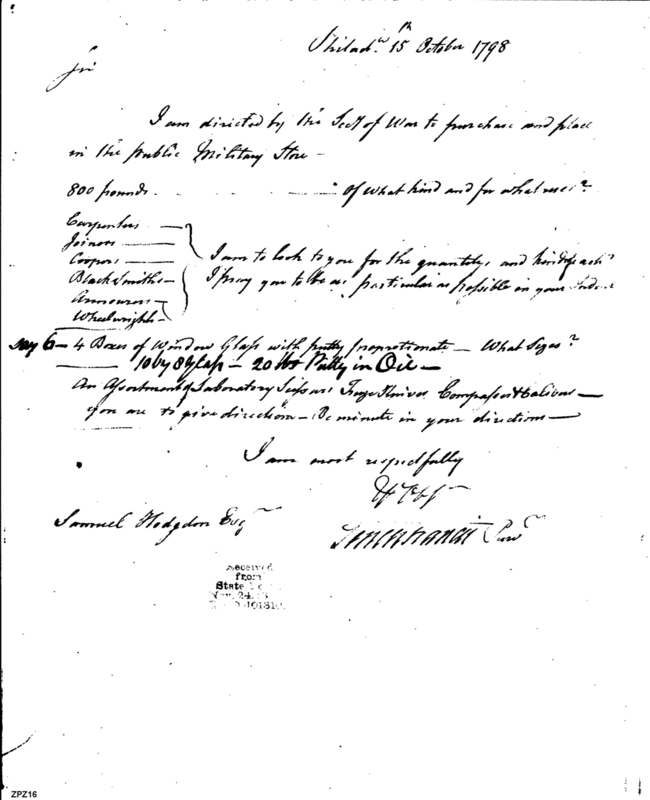 Philad.ᵃ 15th October 1798
Sir
I am directed by the Secy of War to purchase and place
in the public Military Store —
800 pounds . . . . Of what kind and for what use?
Carpenters —
Joiners —
Coopers —
Black Smiths —
Armourers —
Wheelwrights —
I am to look to you for the quantity, and kinds of each?
I pray you to be as particular as possible in your Indent
say 6 — 4 Boxes of Window Glass with putty proportionate — What Sizes?
10 by 8 Glass — 20 lbs Putty in Oil —
An Assortment of Laboratory Scissors Fuze Knives Compasses & Calivers —
you are to give direction — Be minute in your directions —
I am most respectfully
Samuel Hodgdon Esqr
Tench Francis Purvr
Received
from
State
Nov. 24,
ZPZ16